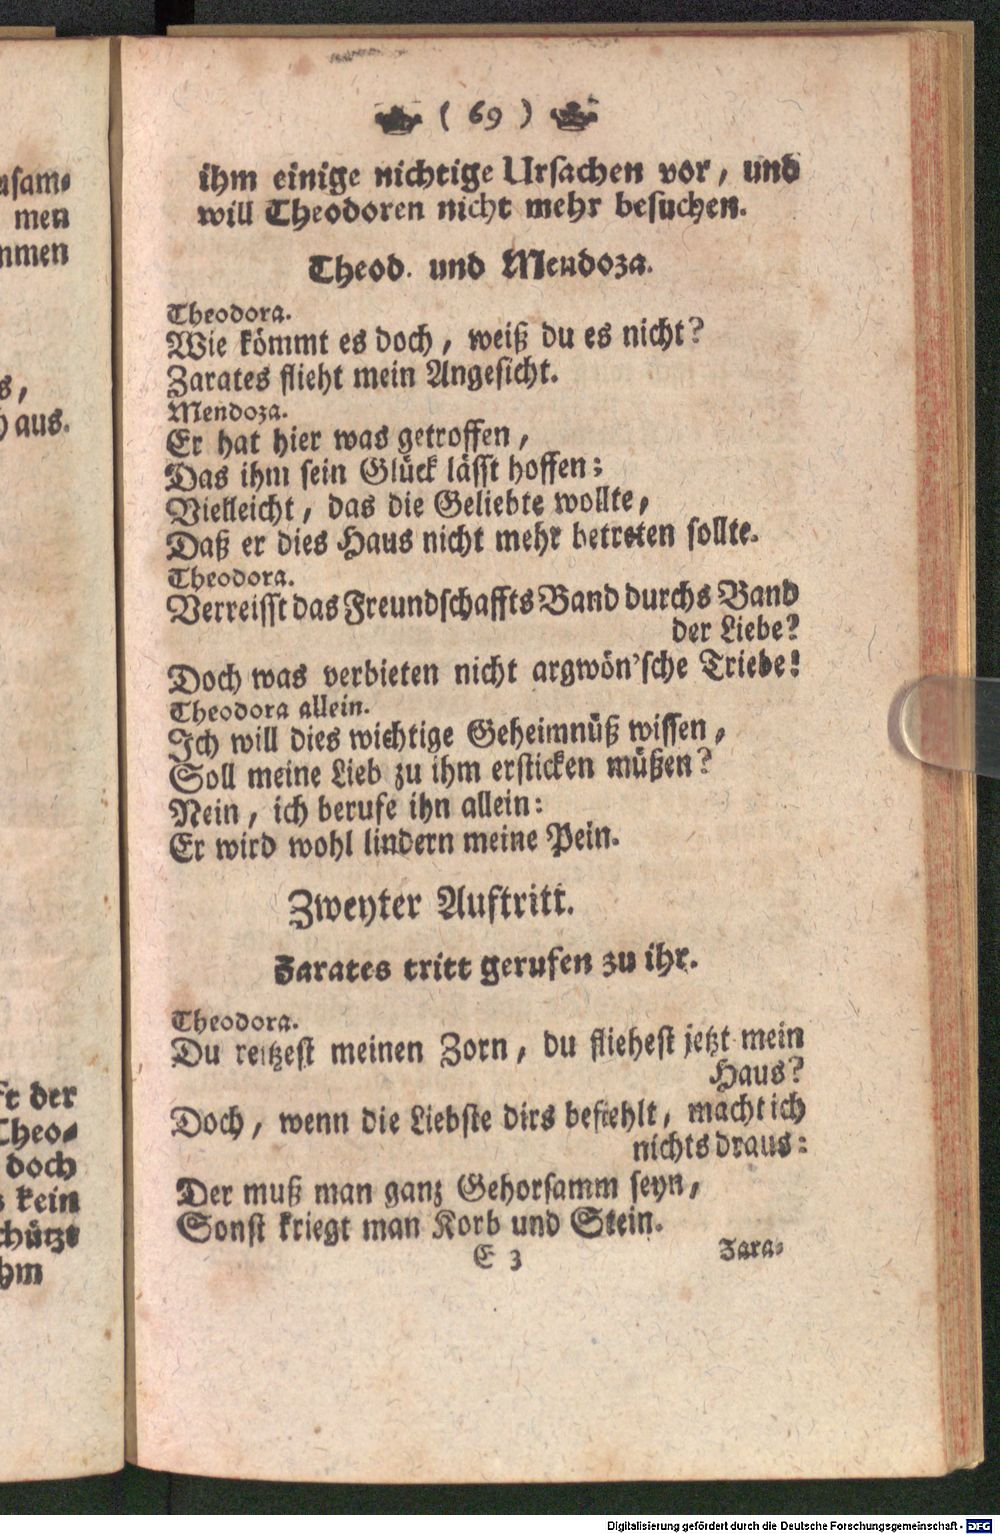 usam-
men
mmen
s,
h aus.
ft der
Theo-
doch
s kein
chützt
ihm
( 69 )
ihm einige nichtige Ursachen vor, und
will Theodoren nicht mehr besuchen.
Theod. und Mendoza.
Theodora.
Wie kömmt es doch, weiß du es nicht?
Zarates flieht mein Angesicht.
Mendoza.
Er hat hier was getroffen,
Das ihm sein Glück lässt hoffen;
Vielleicht, das die Geliebte wollte,
Daß er dies Haus nicht mehr betreten sollte.
Theodora.
Verreisst das Freundschaffts Band durchs Band
der Liebe?
Doch was verbieten nicht argwön'sche Triebe!
Theodora allein.
Ich will dies wichtige Geheimnüß wissen,
Soll meine Lieb zu ihm ersticken müßen?
Nein, ich berufe ihn allein:
Er wird wohl lindern meine Pein.
Zweyter Auftritt.
Zarates tritt gerufen zu ihr.
Theodora.
Du reitzest meinen Zorn, du fliehest jetzt mein
Haus?
Doch, wenn die Liebste dirs befiehlt, macht ich
nichts draus:
Der muß man ganz Gehorsamm seyn,
Sonst kriegt man Korb und Stein.
E 3 Zara-
Digitalisierung gefördert durch die Deutsche Forschungsgemeinschaft - DFG